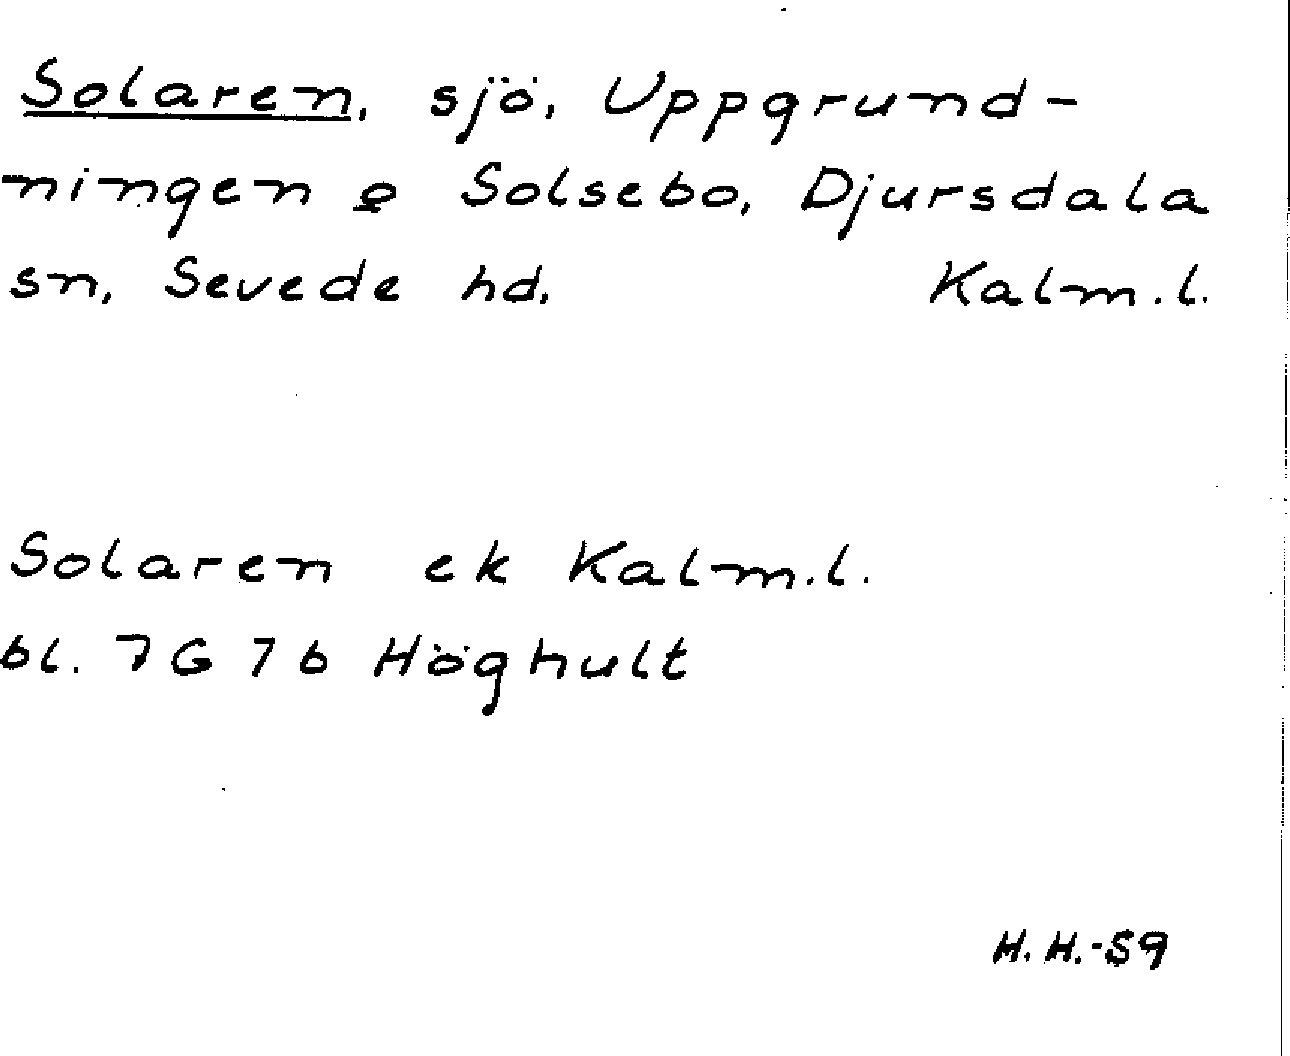 Solaren, sjö, Uppgrund-
ningen o Solsebo, Djursdala
sn, Sevede hd. Kalm.l.
Solaren ek Kalm.l.
bl. 7G 7b Höghult
H.H.-59